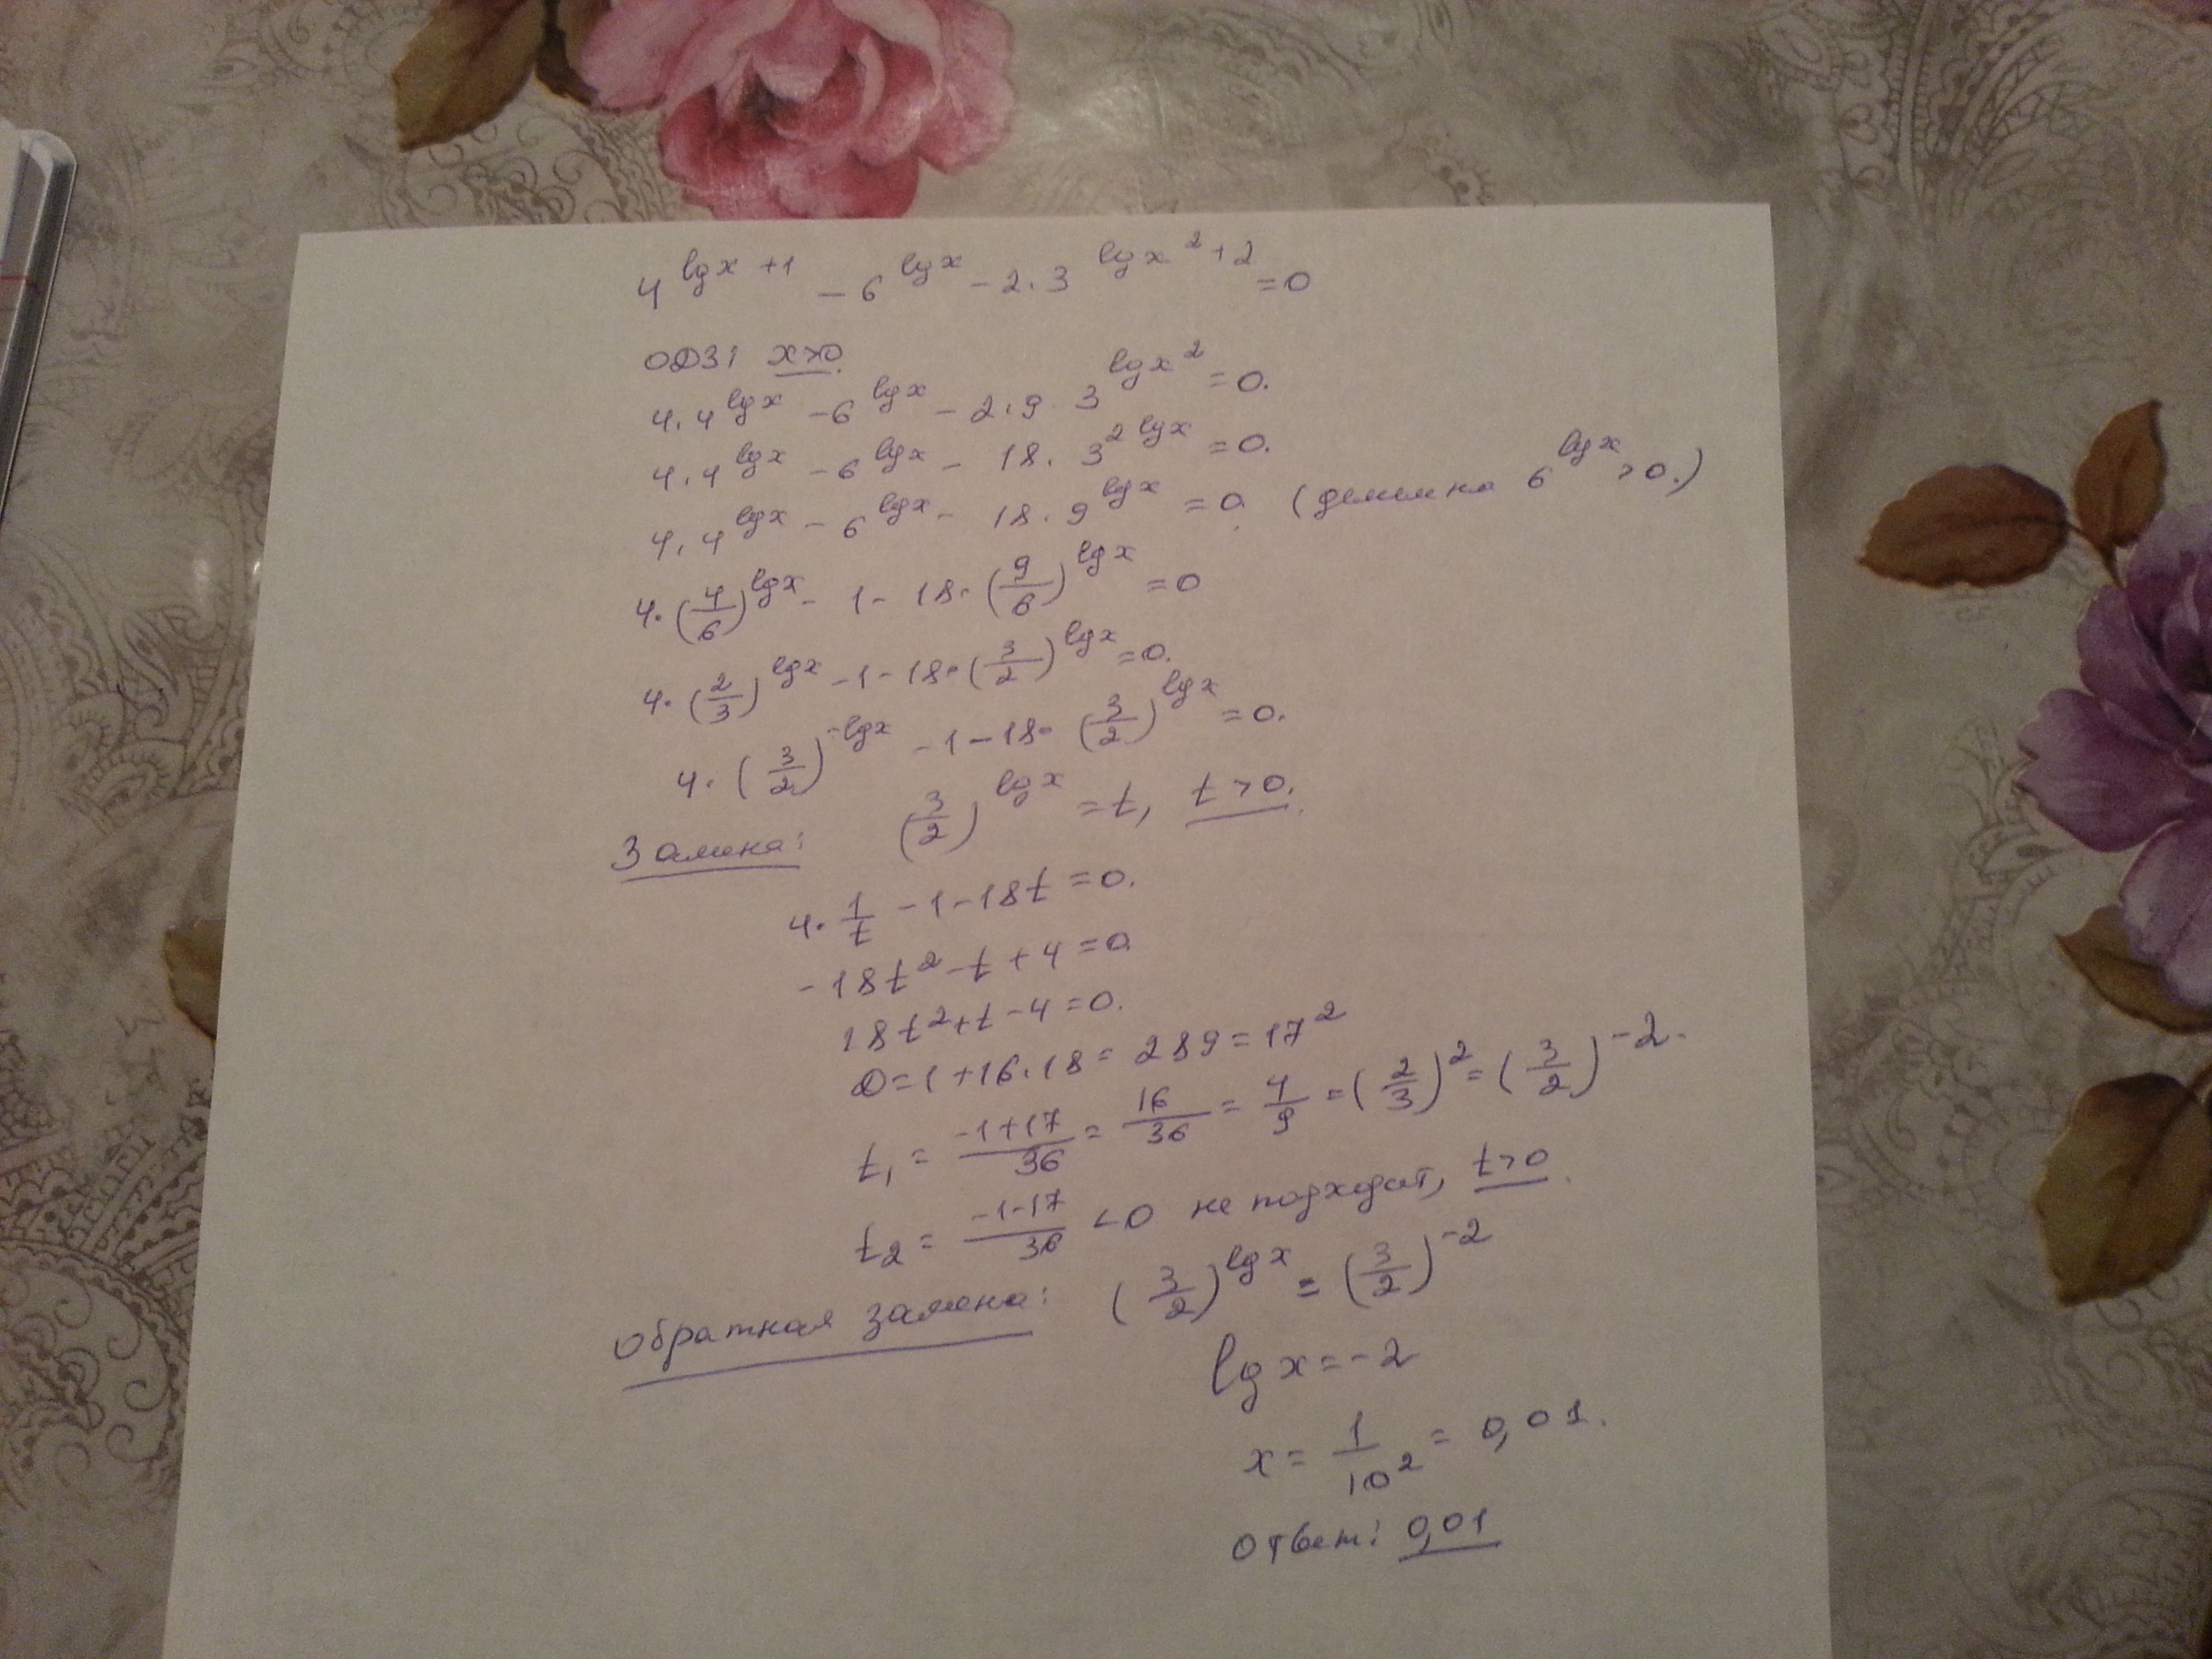 4^{lg x + 1} - 6^{lg x} - 2·3^{lg x^2 + 2} = 0
ОДЗ: x>0.
4·4^{lg x} - 6^{lg x} - 2·9·3^{lg x^2} = 0.
4·4^{lg x} - 6^{lg x} - 18·3^{2 lg x} = 0.
4·4^{lg x} - 6^{lg x} - 18·9^{lg x} = 0. (делим на 6^{lg x} > 0.)
4·(4/6)^{lg x} - 1 - 18·(9/6)^{lg x} = 0
4·(2/3)^{lg x} - 1 - 18·(3/2)^{lg x} = 0.
4·(3/2)^{-lg x} - 1 - 18·(3/2)^{lg x} = 0.
Замена: (3/2)^{lg x} = t, t > 0.
4·1/t - 1 - 18t = 0.
-18t^2 - t + 4 = 0
18t^2 + t - 4 = 0.
D = 1 + 16·18 = 289 = 17^2
t_1 = (-1+17)/36 = 16/36 = 4/9 = (2/3)^2 = (3/2)^{-2}.
t_2 = (-1-17)/36 < 0 не подходит, t>0.
Обратная замена: (3/2)^{lg x} = (3/2)^{-2}
lg x = -2
x = 1/10^2 = 0,01.
Ответ: 0,01